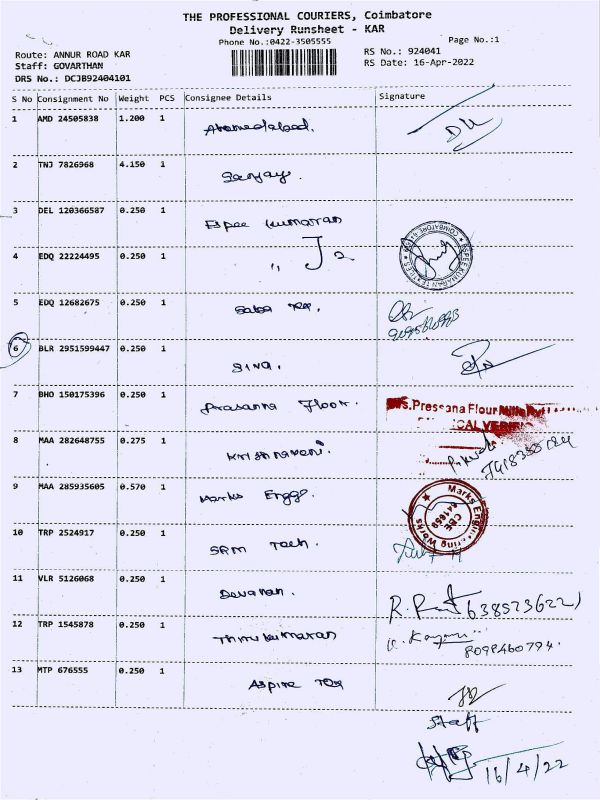 THE PROFESSIONAL COURIERS, Coimbatore
Delivery Runsheet - KAR
Phone No.:0422-3505555
Page No.:1
Route: ANNUR ROAD KAR
RS No.: 924041
Staff: GOVARTHAN
RS Date: 16-Apr-2022
DRS No.: DCJB92404101
S No Consignment No Weight PCS Consignee Details Signature
1 AMD 24505838 1.200 1 Ahamedabad.
2 TNJ 7826968 4.150 1 Sanjay.
3 DEL 120366587 0.250 1 Espee Kumaran
4 EDQ 22224495 0.250 1 " J 2
5 EDQ 12682675 0.250 1 Saba Tex.
6 BLR 2951599447 0.250 1 Siva.
7 BHO 150175396 0.250 1 Prasanna Floor.
Pressana Flour Mills
8 MAA 282648755 0.275 1 Krishnaveni.
9 MAA 285935605 0.570 1 Marks Engg.
Marks Engineering Works
CBE
641659
10 TRP 2524917 0.250 1 SRM Tech.
11 VLR 5126068 0.250 1 Devanan.
12 TRP 1545878 0.250 1 Thirukumaran
8098460794.
13 MTP 676555 0.250 1 Aspire Tex
Staff
16/4/22